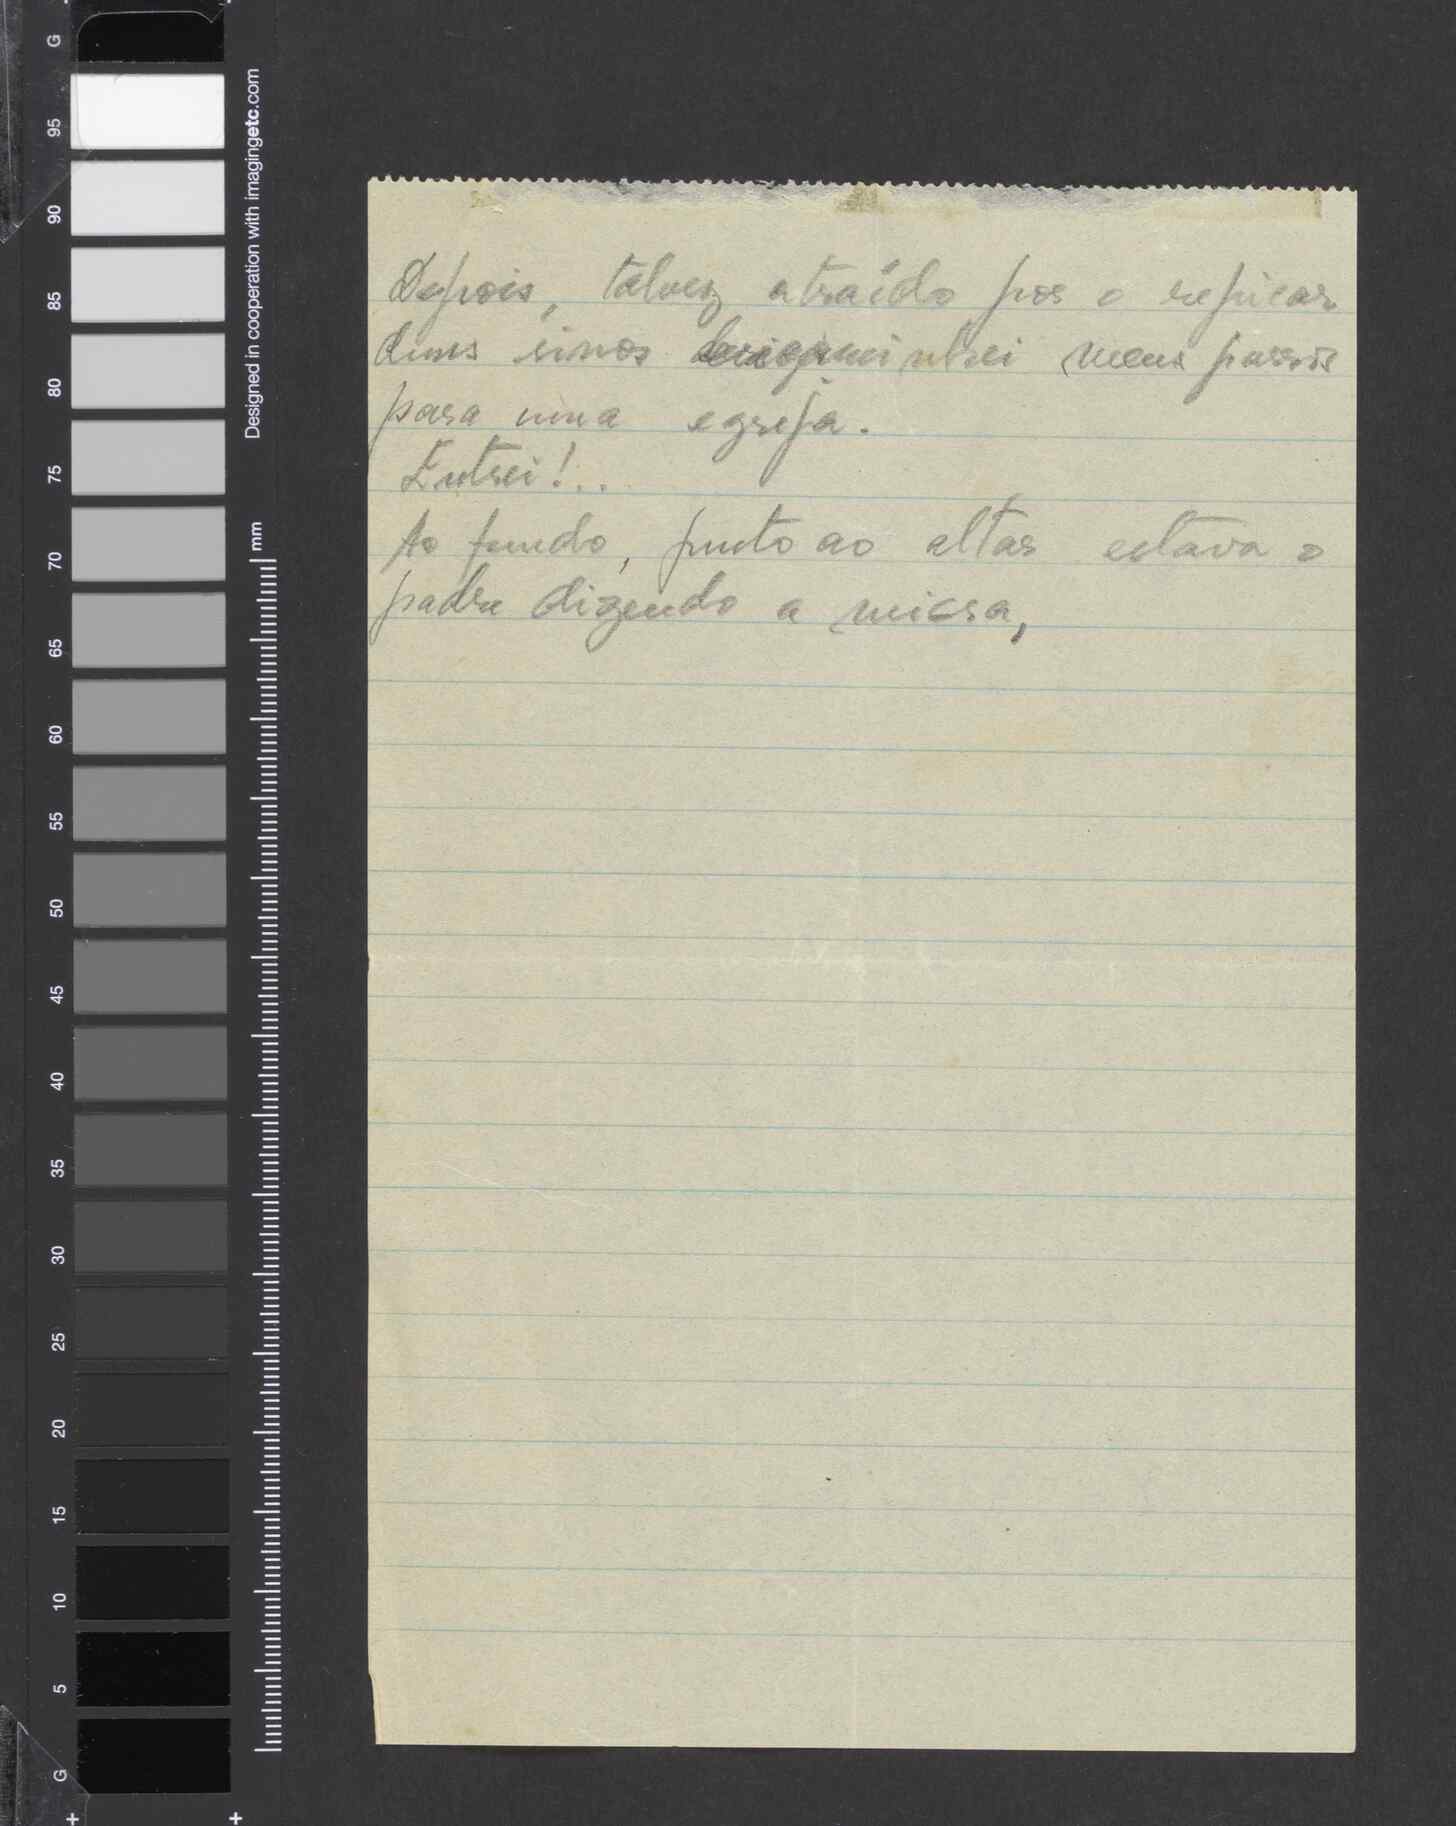 Depois, talvez atraído por o repicar
duns sinos meus passos
para uma egreja.
Entrei!...
Ao fundo, junto ao altar estava o
padre dizendo a missa,
Designed in cooperation with imagingetc.com
mm
G
95
90
85
80
75
70
65
60
55
50
45
40
35
30
25
20
15
10
5
G